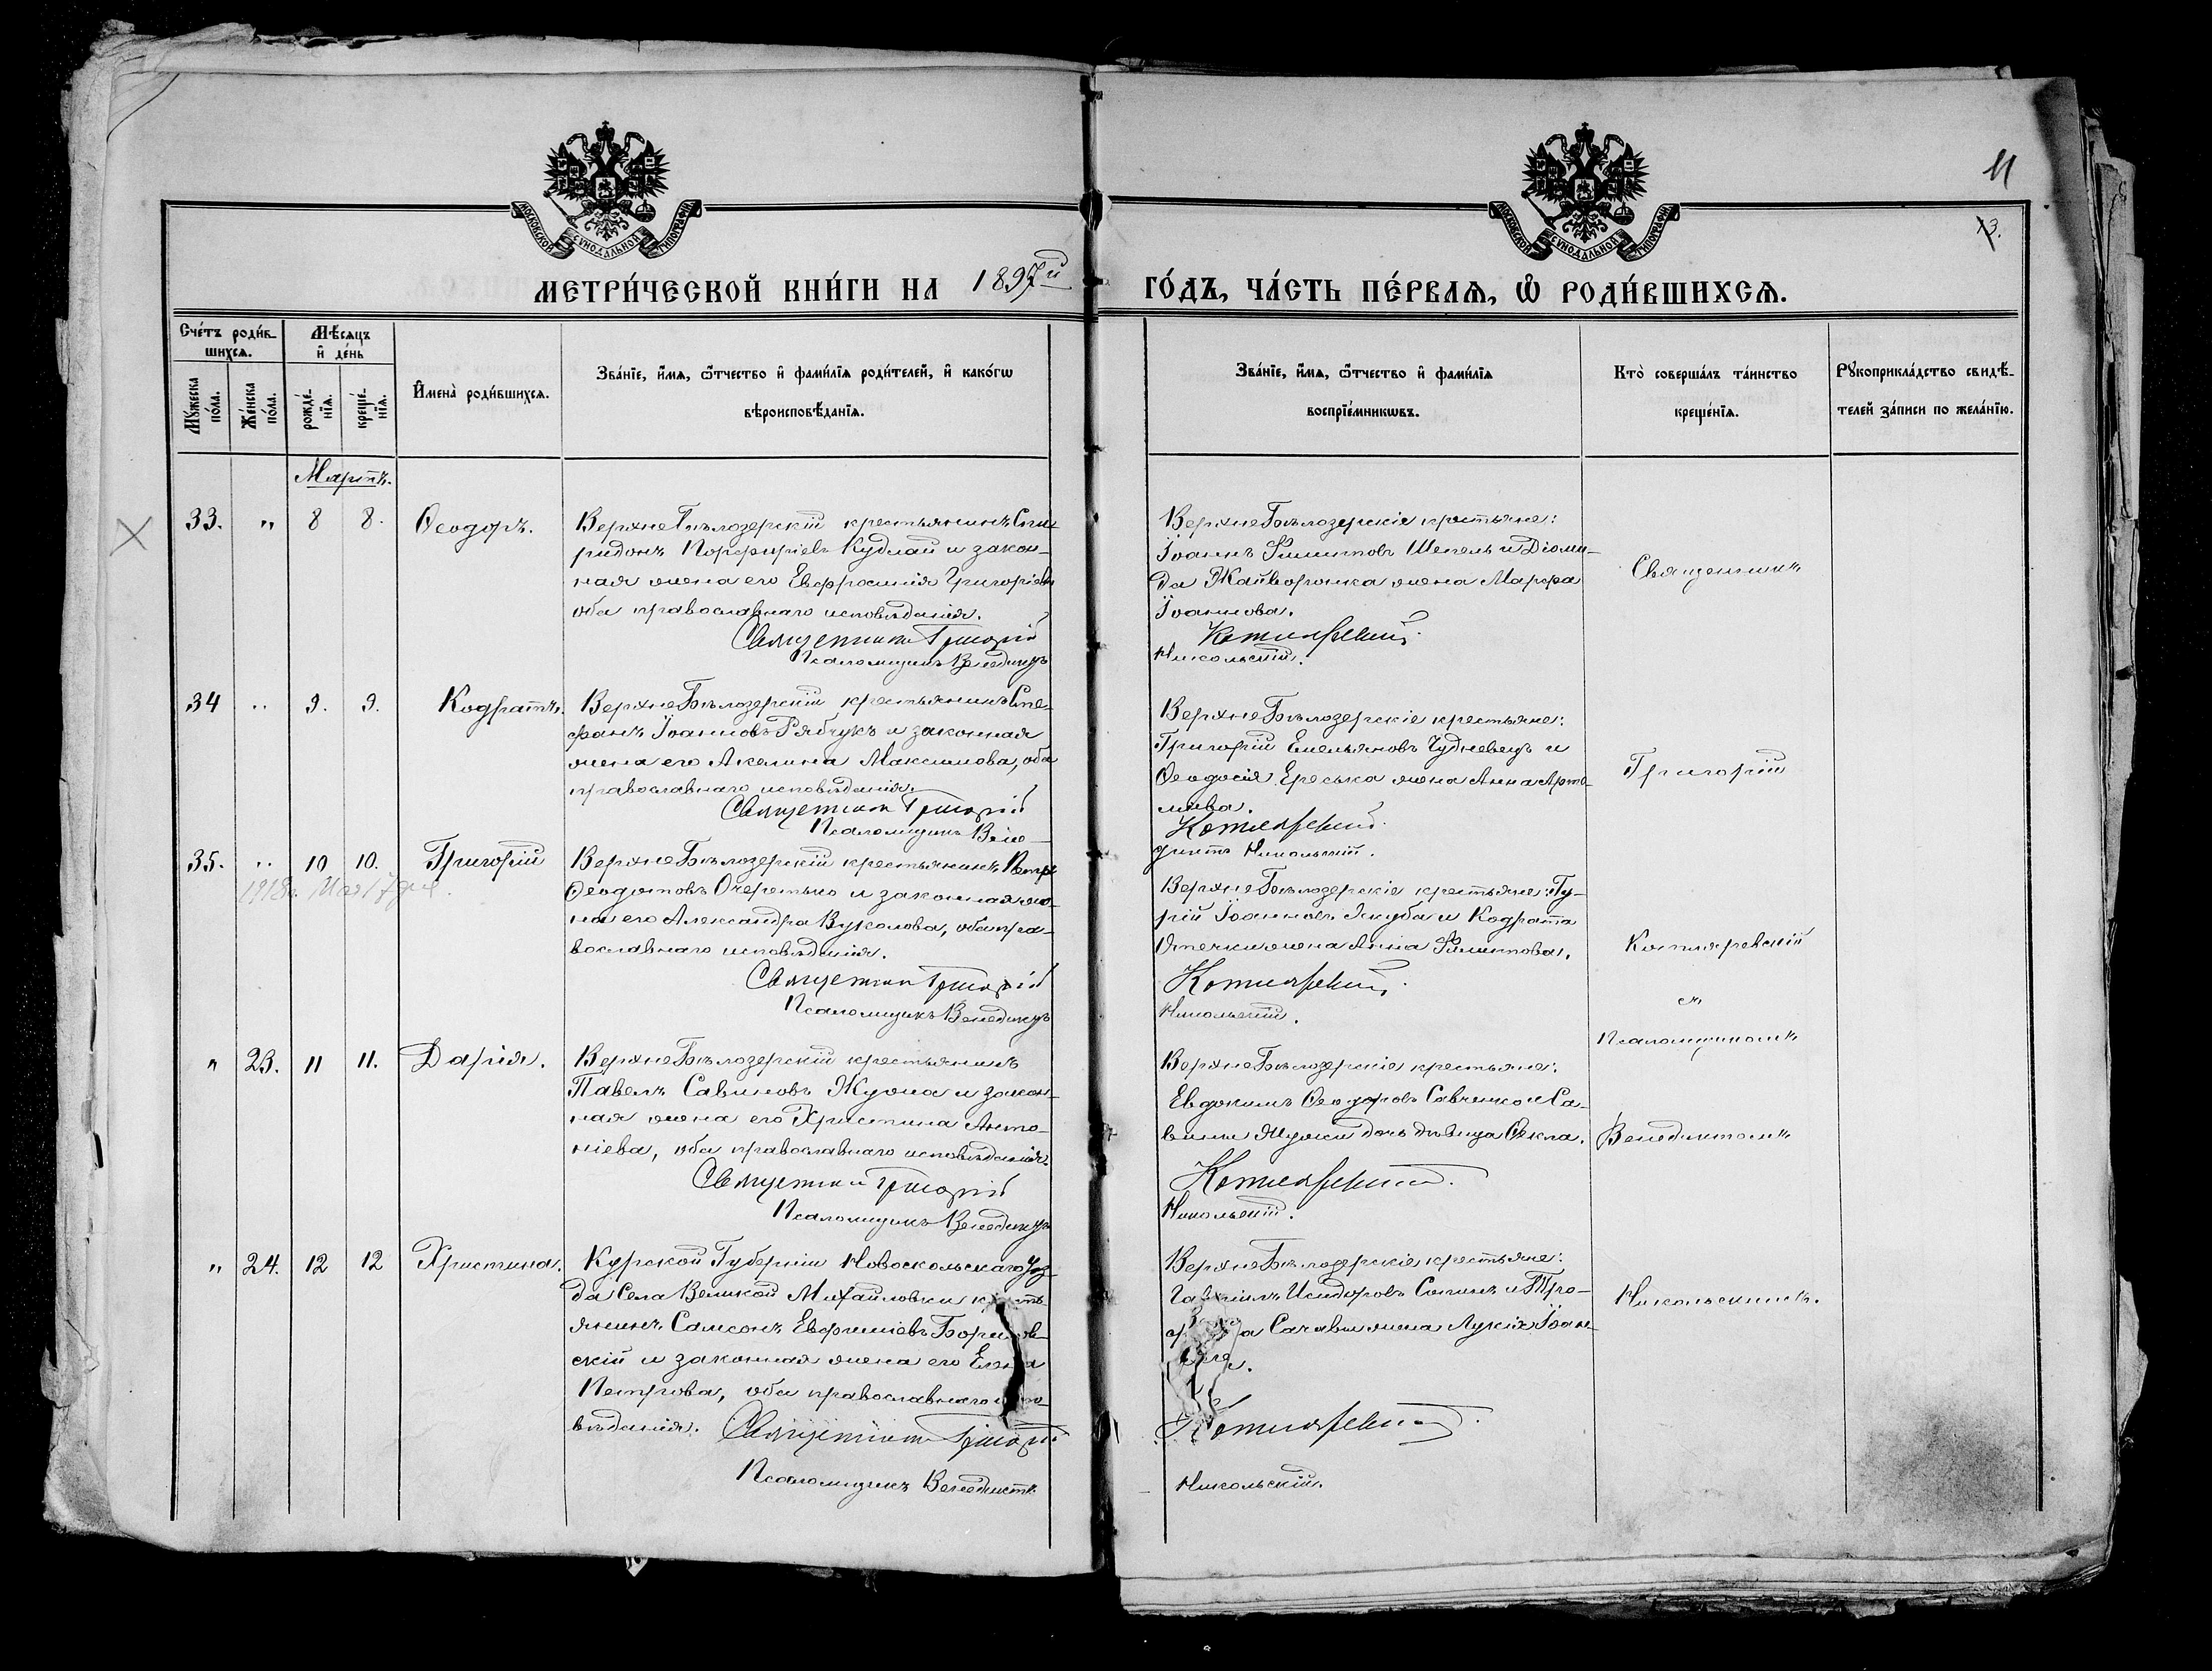 11
13.
МОСКОВСКОЙ СѴНОДАЛЬНОЙ ТИПОГРАФІИ
МОСКОВСКОЙ СѴНОДАЛЬНОЙ ТИПОГРАФІИ
МЕТРИ́ЧЕСКОЙ КНИ́ГИ НА 1897й ГО́ДЪ, ЧА́СТЬ ПЕ́РВАѦ, Ѡ РОДИ́ВШИХСѦ.
Сче́тъ роди́в-
шихсѧ.
Мꙋжеска по́ла.
Же́нска по́ла.
Мѣсѧцъ и҆ де́нь
рожде́-нїѧ.
креще́-нїѧ.
И҆мена̀ роди́вшихсѧ.
Зва́нїе, и҆́мѧ, ѻ҆́тчество и҆ фами́лїѧ роди́телей, и҆ како́гѡ
вѣроисповѣ́данїѧ.
Зва́нїе, и҆́мѧ, ѻ҆́тчество и҆ фами́лїѧ
воспрїе́мникѡвъ.
Кто̀ соверша́лъ та́инство
креще́нїѧ.
Рꙋкоприкла́дство свидѣ́-
телей за́писи по жела́нїю.
Мартъ.
33. " 8 8. Ѳеодоръ.
ВерхнеБѣлозерскій крестьянинъ Спи-
ридонъ Порфиріевъ Кудлай и закон-
ная жена его Евфросинія Григоріева
оба православнаго исповѣданія.
Священникъ Григорій
Псаломщикъ Венедиктъ
ВерхнеБѣлозерскіе крестьяне:
Іоаннъ Филиповъ Шепель и Діоми-
да Жайворонка жена Марфа
Іоаннова.
Котляревскій.
Никольскій.
34 " 9. 9. Кодратъ.
ВерхнеБѣлозерскій крестьянинъ Сте-
фанъ Іоанновъ Рябчукъ и законная
жена его Акелина Максимова, оба
православнаго исповѣданія.
Священникъ Григорій
Псаломщикъ Вене-
ВерхнеБѣлозерскіе крестьяне:
Григорій Емельяновъ Чудневецъ и
Ѳеодосія Ереська жена Анна Арте-
міева.
Котляревскій.
диктъ Никольскій.
35. " 10 10. Григорій
1918г. Мая 17 дня.
ВерхнеБѣлозерскій крестьянинъ Петръ
Ѳеодотовъ Очеретько и законная же-
на его Александра Вуколова, оба пра-
вославнаго исповѣданія.
Священникъ Григорій
Псаломщикъ Венедиктъ
ВерхнеБѣлозерскіе крестьяне: Гу-
рій Іоанновъ Якуба и Кодрата
жена Анна Филипова.
Котляревскій.
Никольскій.
" 23. 11 11. Дарія.
ВерхнеБѣлозерскій крестьянинъ
Павелъ Савиновъ Жужа и закон-
ная жена его Христина Анто-
ніева, оба православнаго исповѣданія.
Священникъ Григорій
Псаломщикъ Венедиктъ
ВерхнеБѣлозерскіе крестьяне:
Евдокимъ Ѳеодоровъ Савченко и Са-
вины Жужи дочь дѣвица Ѳекла.
Котляревскій.
Никольскій.
" 24. 12 12 Христина.
Курской Губерніи Новоскольскаго Уѣз-
да Села Великой Михайловки крестъ-
янинъ Самсонъ Евфиміевъ
скій и законная жена его Елена
Петрова, оба православнаго испо
вѣданія. Священникъ Григорій
Псаломщикъ Венедиктъ
ВерхнеБѣлозерскіе крестьяне:
Гавріилъ Исидоровъ и Тро-
жена Лукія Іоан-
Котляревскій.
Никольскій.
Священникъ
Григорій
Котляревскій
съ
Псаломщикомъ
Венедиктомъ
Никольскимъ.